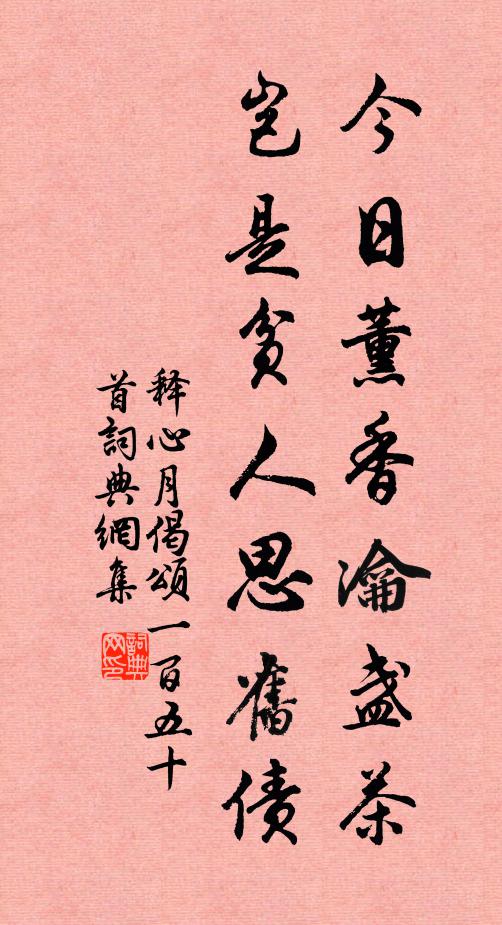 今日薰香瀹盏茶
岂是贫人思舊债
释心月偈頌一百五十
首詞典網集
詞典
网印